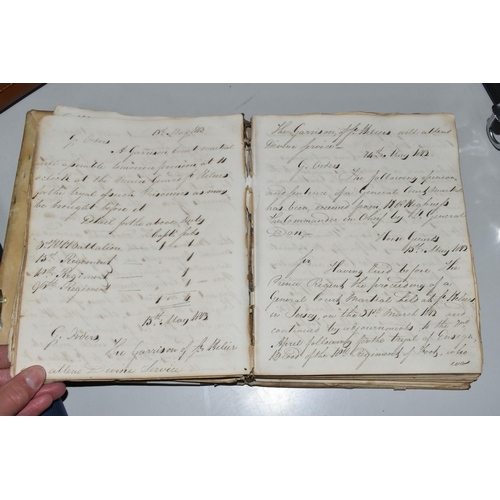 13th May 1813
G. Orders
A Garrison Court Martial
will assemble tomorrow morning at 11
o'clock at the Main Guard St. Heliers
for the trial of such Prisoners as may
be brought before it
Detail for the above duty
Capt Subs
Battalion 1 1
15th Regiment 1
Regiment 1
Regiment 1
1 4
15th May 1813
G. Orders
The Garrison of St. Helier
will attend Divine Service
The Garrison of St. Heliers will attend
Divine Service
24th May 1813
G. Orders
The following opinion
and sentence of a General Court Martial
has been received from H.R. Highness
the Commander in Chief by Lt. General
Don
Horse Guards
15th May 1813
Sir
Having laid before The
Prince Regent the proceedings of a
General Court Martial held at St. Heliers
in Jersey on the 31st March 1813 and
continued by adjournments to the 2nd
April following for the trial of Ensign
of the Regiment of Foot, who